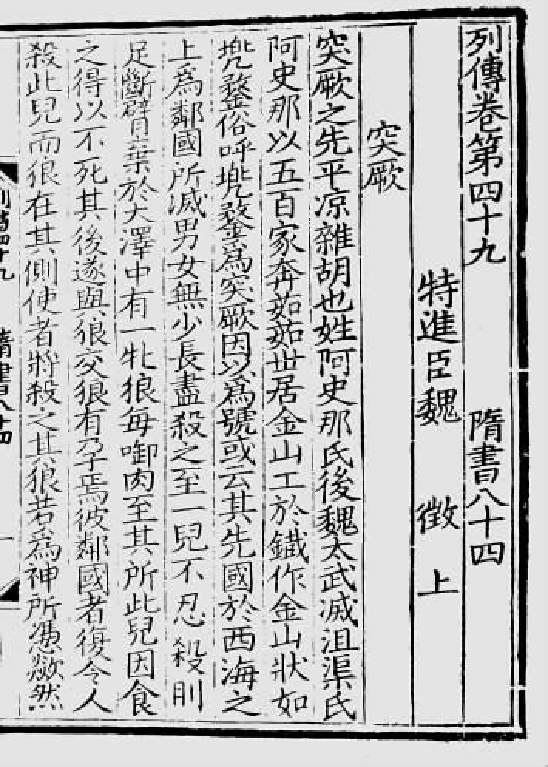 列傳卷第四十九 隋書八十四
特進臣魏 徵 上
突厥
突厥之先平涼雜胡也姓阿史那氏後魏太武滅沮渠氏
阿史那以五百家奔茹茹世居金山工於鐵作金山狀如
兜鍪俗呼兜鍪爲突厥因以爲號或云其先國於西海之
上爲鄰國所滅男女無少長盡殺之至一兒不忍殺刖
足斷臂棄於大澤中有一牝狼每啣肉至其所此兒因食
之得以不死其後遂與狼交狼有孕焉彼鄰國者復令人
殺此兒而狼在其側使者將殺之其狼若爲神所憑欻然
隋書八十四